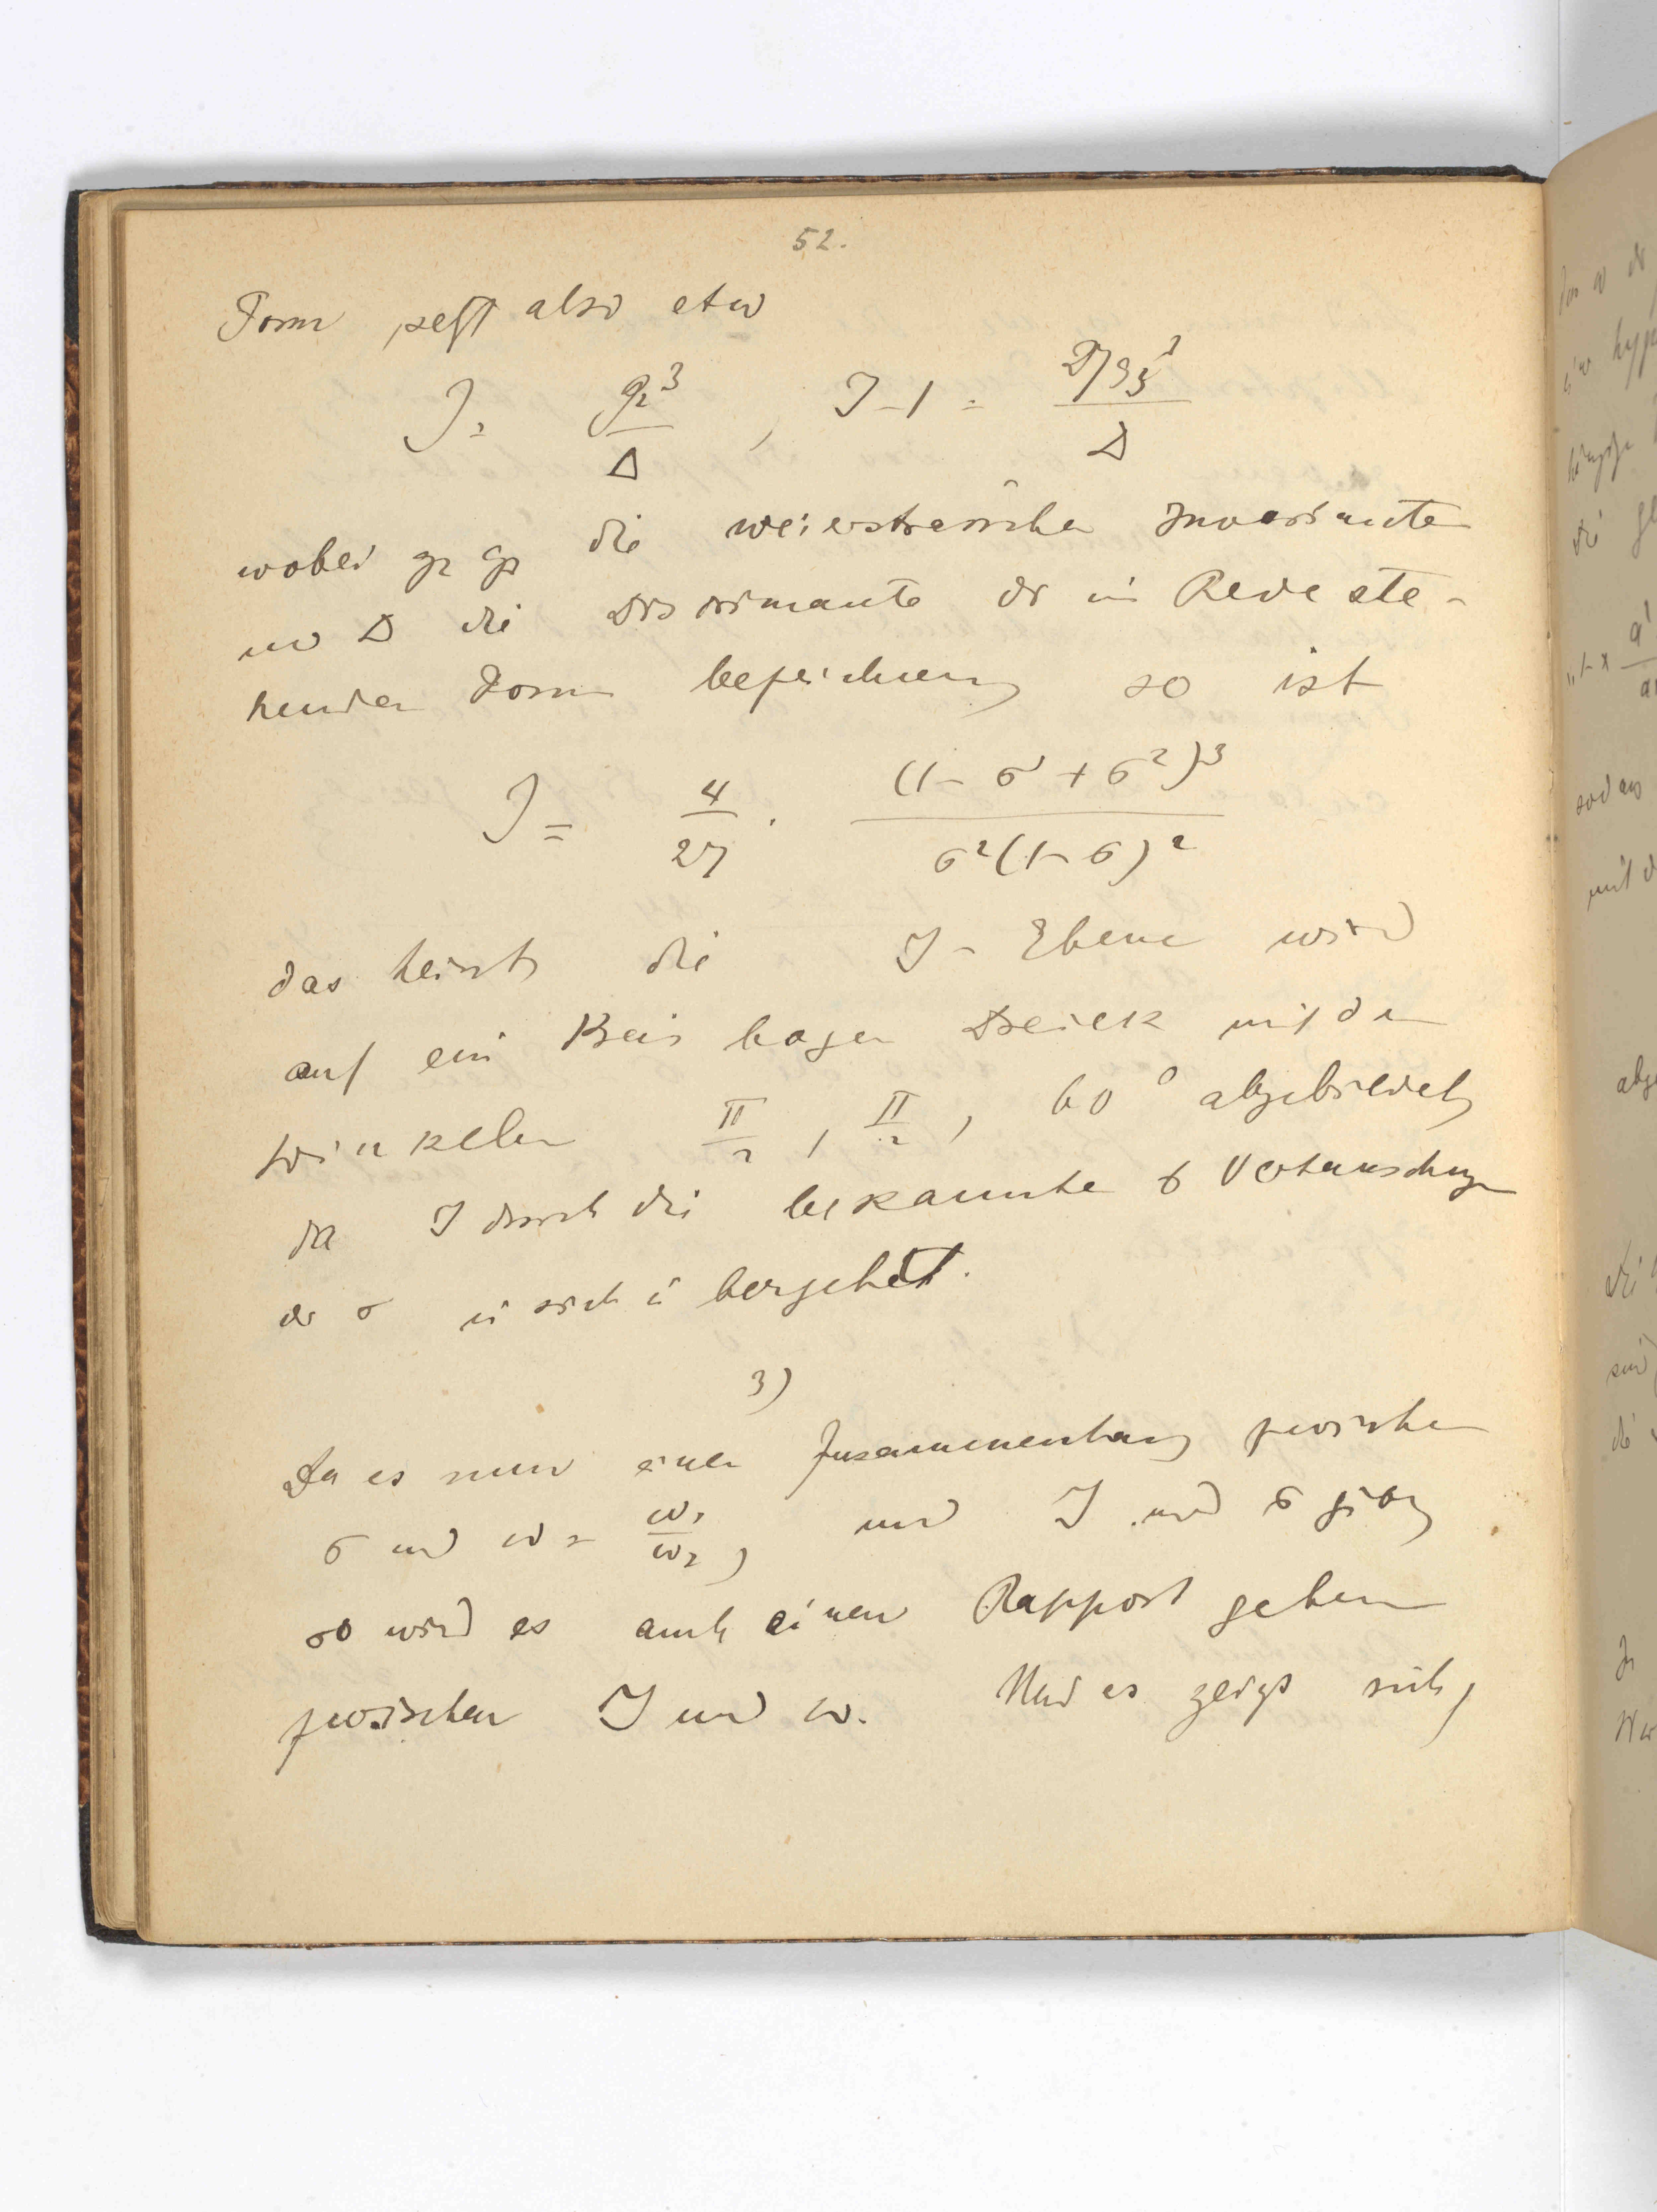 52.
Form setzt also etw
J = g₂³/Δ , J-1 = 27g₃²/Δ
wobei g₂ g₃ die weierstrassschen Invarianten
und Δ die Discriminante der in Rede ste-
henden Form bezeichnen, so ist
J = 4/27 · (1-σ+σ²)³/σ²(1-σ)²
das heisst, die J-Ebene wird
auf ein Kreisbogen Dreieck mit den
Winkeln π/2, π/2, 60° abgebildet,
da J durch die bekannten 6 Vertauschungen
der σ in sich übergehet.
3)
Da es nun einen Zusammenhang zwischen
σ und ω = ω₁/ω₂, und J und σ gibt,
so wird es auch einen Rapport geben
zwischen J und ω. Und es zeigt sich,